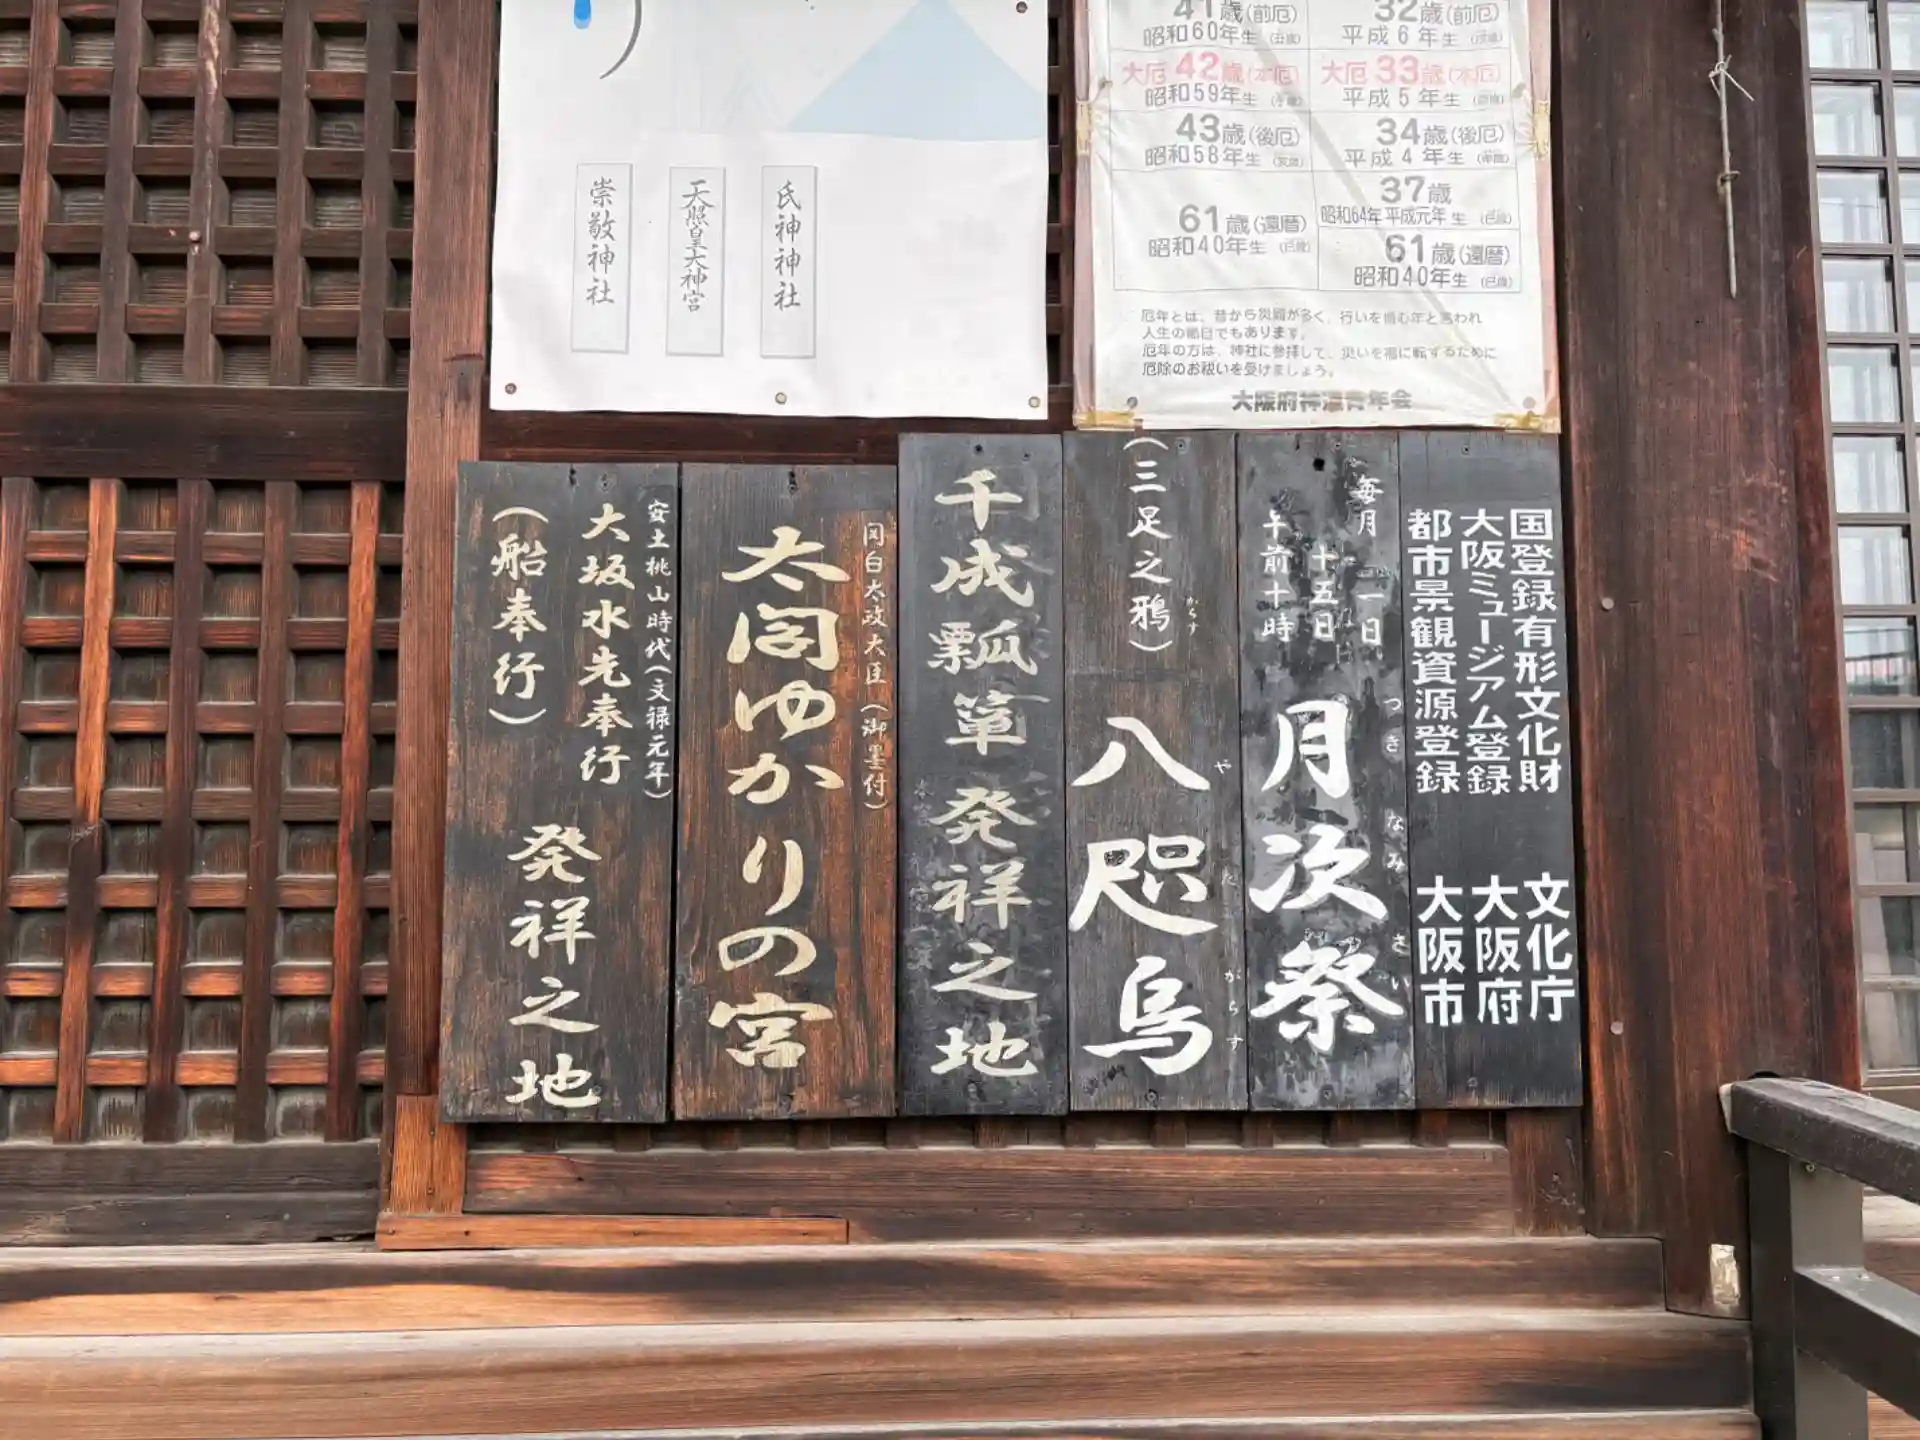 氏神神社
天照皇大神宮
崇敬神社
41歳(前厄)
昭和60年生
32歳(前厄)
平成6年生
大厄42歳(本厄)
昭和59年生
大厄33歳(本厄)
平成5年生
43歳(後厄)
昭和58年生
34歳(後厄)
平成4年生
61歳(還暦)
昭和40年生(巳歳)
37歳
昭和64年平成元年生(巳歳)
61歳(還暦)
昭和40年生(巳歳)
厄年とは、昔から災難が多く、行いを慎む年と言われ
人生の節目でもあります。
厄年の方は、神社に参拝して、災いを福に転ずるために
厄除のお祓いを受けましょう。
大阪府神道青年会
国登録有形文化財 文化庁
大阪ミュージアム登録 大阪府
都市景観資源登録 大阪市
毎月 一日
十五日
午前十時
月次祭
つきなみさい
(三足之鴉)
からす
八咫烏
やたがらす
千成瓢箪発祥之地
関白太政大臣(御墨付)
太閤ゆかりの宮
安土桃山時代(文禄元年)
大坂水先奉行
(船奉行)
発祥之地